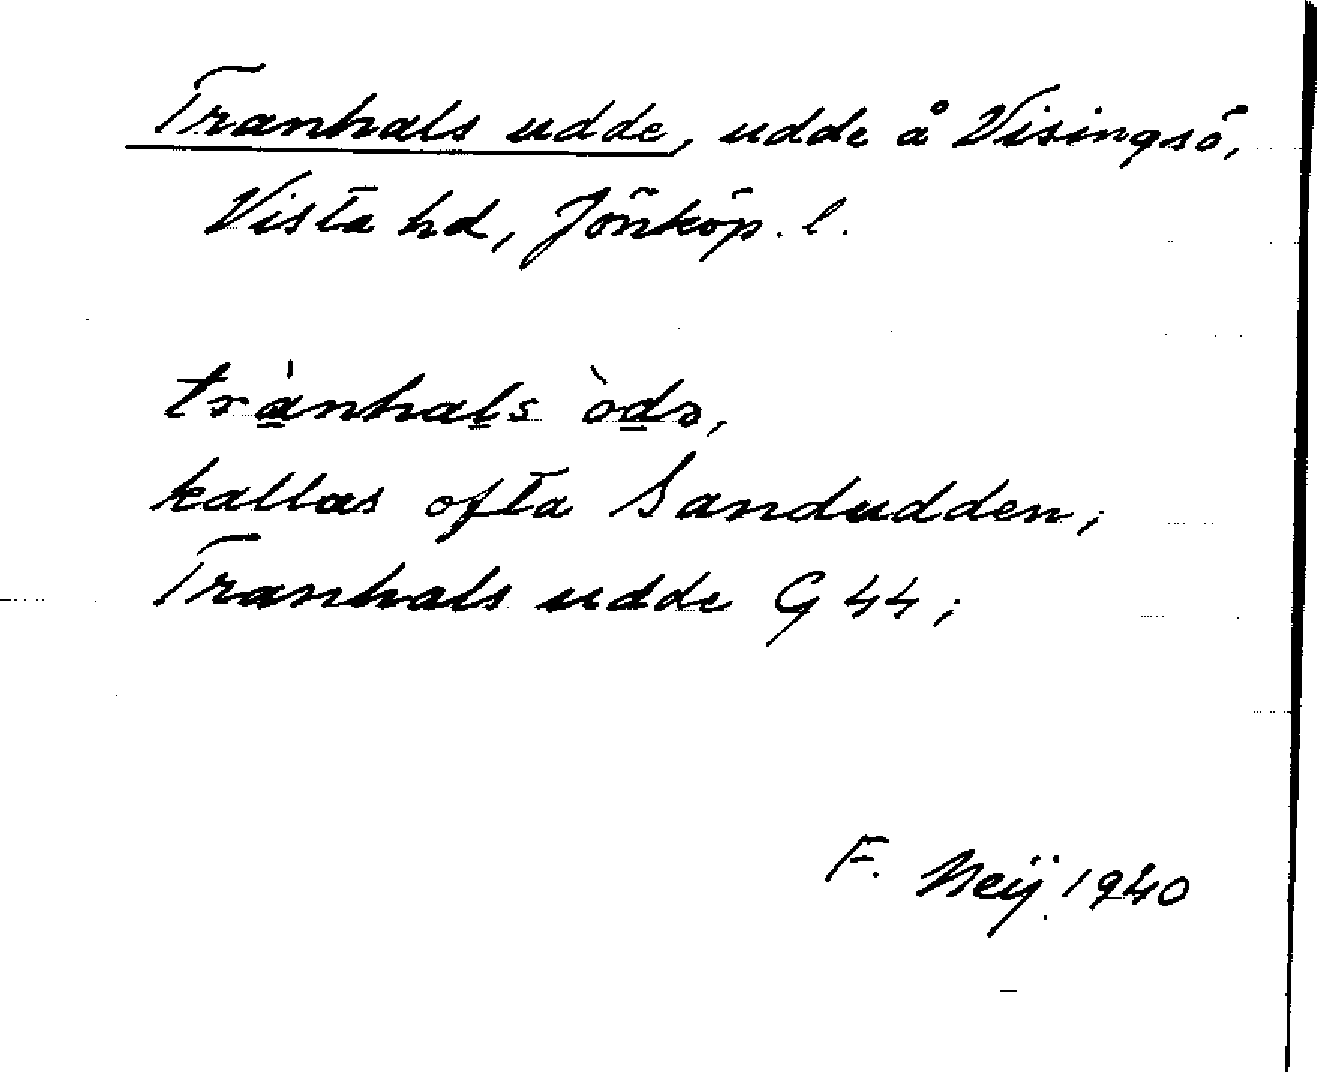 Tranhals udde, udde å Visingsö,
Vista hd, Jönköp. l.
trànhals òdɘ,
kallas ofta Sandudden;
Tranhals udde G 44;
F. Neij. 1940